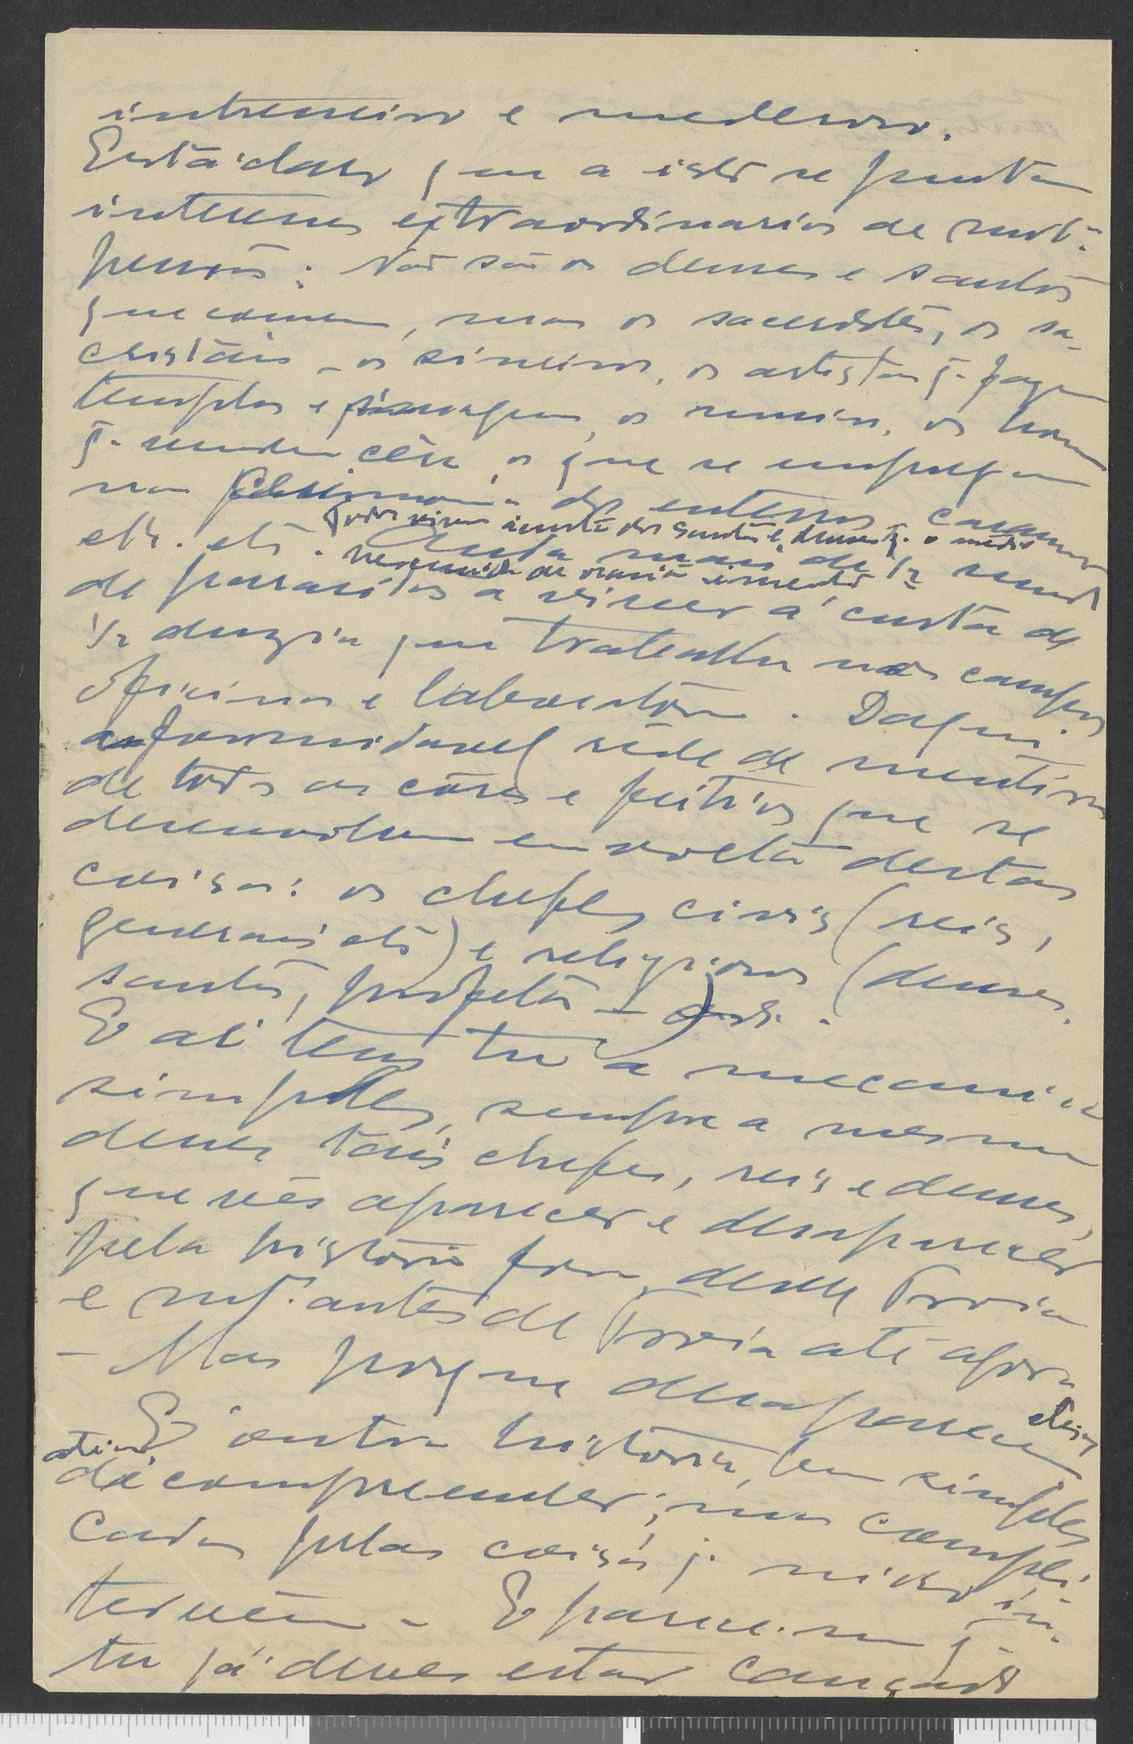 interesseiro e medroso.
Está claro que a isto se juntam
interesses extraordinarios de mts.
pessoas: Não são os deuses e santos
que comem, mas os sacerdotes, os sa-
cristãis, os sineiros, os artistas q. fazem
templos e imagens, os os homens
q. vendem cêra, os que se empregam
nas dos enterros, casamentos
Todos vivem á custa dos santos e deuses q. o mêdo
etc. etc. Anda mais de 1/2 mundo
necessidade de
de parasitas a viver á custa de
1/2 duzia que trabalha nos campos
oficinas e laboratórios. Daqui
a formidavel rêde de mentiras
de todas as côres e feitios que se
desenvolvem em volta destas
coisas: os chefes civis (reis,
generais etc) e religiosos (deuses,
santos, profetas etc.
E aí tens tu a mecanica
simples, sempre a mesma
desses tais chefes, reis e deuses,
que vês aparecer e desaparecer
pela história fora, desde Troia
e mt. antes de Troia até agora
- Mas porque desaparecem
É outra história, bem simples
de compreender; mas compli-
cada pelas coisas q. nisso in-
tervêem. E parece-me q.
tu já deves estar cançado